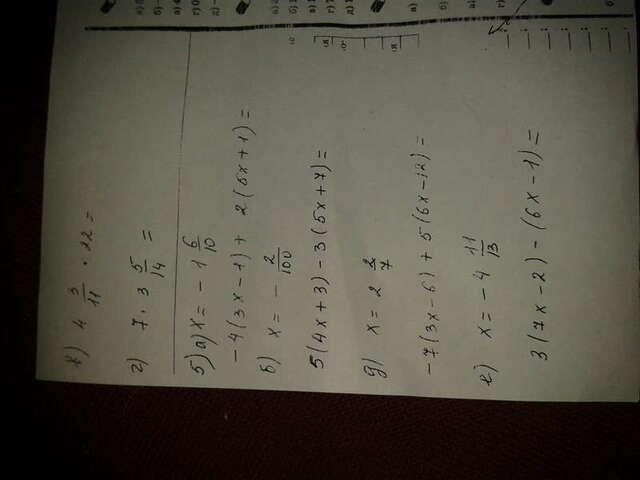 в) 4 3/11 · 22 =
г) 7 · 3 5/14 =
5) а) x = - 1 6/10
- 4 (3x - 1) + 2 (6x + 1) =
б) x = - 2/100
5 (4x + 3) - 3 (5x + 7) =
д) x = 2 2/7
- 7 (3x - 6) + 5 (6x - 12) =
е) x = - 4 11/13
3 (7x - 2) - (6x - 1) =